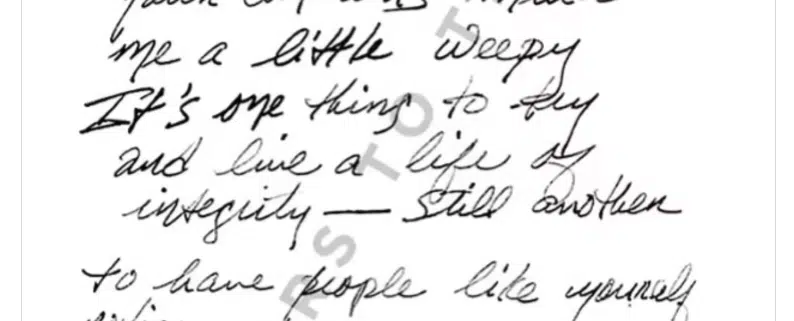 me a little weepy
It's one thing to try
and live a life of
integrity — still another
to have people like yourself